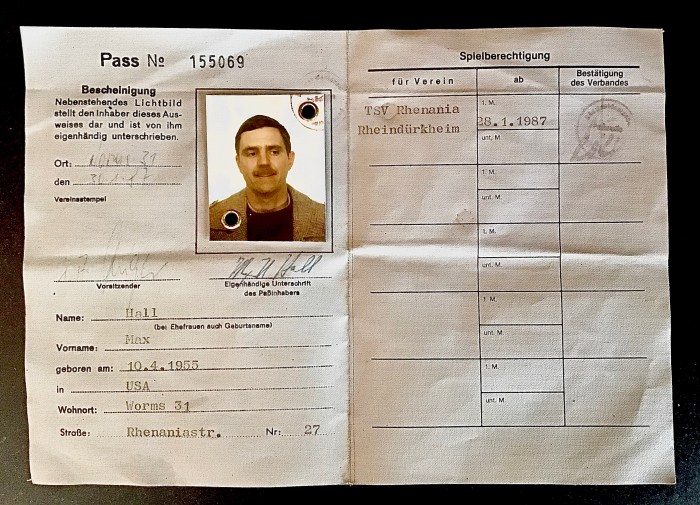 Pass № 155069
Bescheinigung
Nebenstehendes Lichtbild
stellt den Inhaber dieses Aus-
weises dar und ist von ihm
eigenhändig unterschrieben.
Ort: Worms 31
den
Vereinsstempel
Vorsitzender
Max H Hall
Eigenhändige Unterschrift
des Paßinhabers
Name: Hall
(bei Ehefrauen auch Geburtsname)
Vorname: Max
geboren am: 10.4.1955
in USA
Wohnort: Worms 31
Straße: Rhenaniastr. Nr: 27
Spielberechtigung
für Verein ab Bestätigung
des Verbandes
TSV Rhenania
Rheindürkheim
I. M.
28.1.1987
unt. M.
I. M.
unt. M.
I. M.
unt. M.
I. M.
unt. M.
I. M.
unt. M.